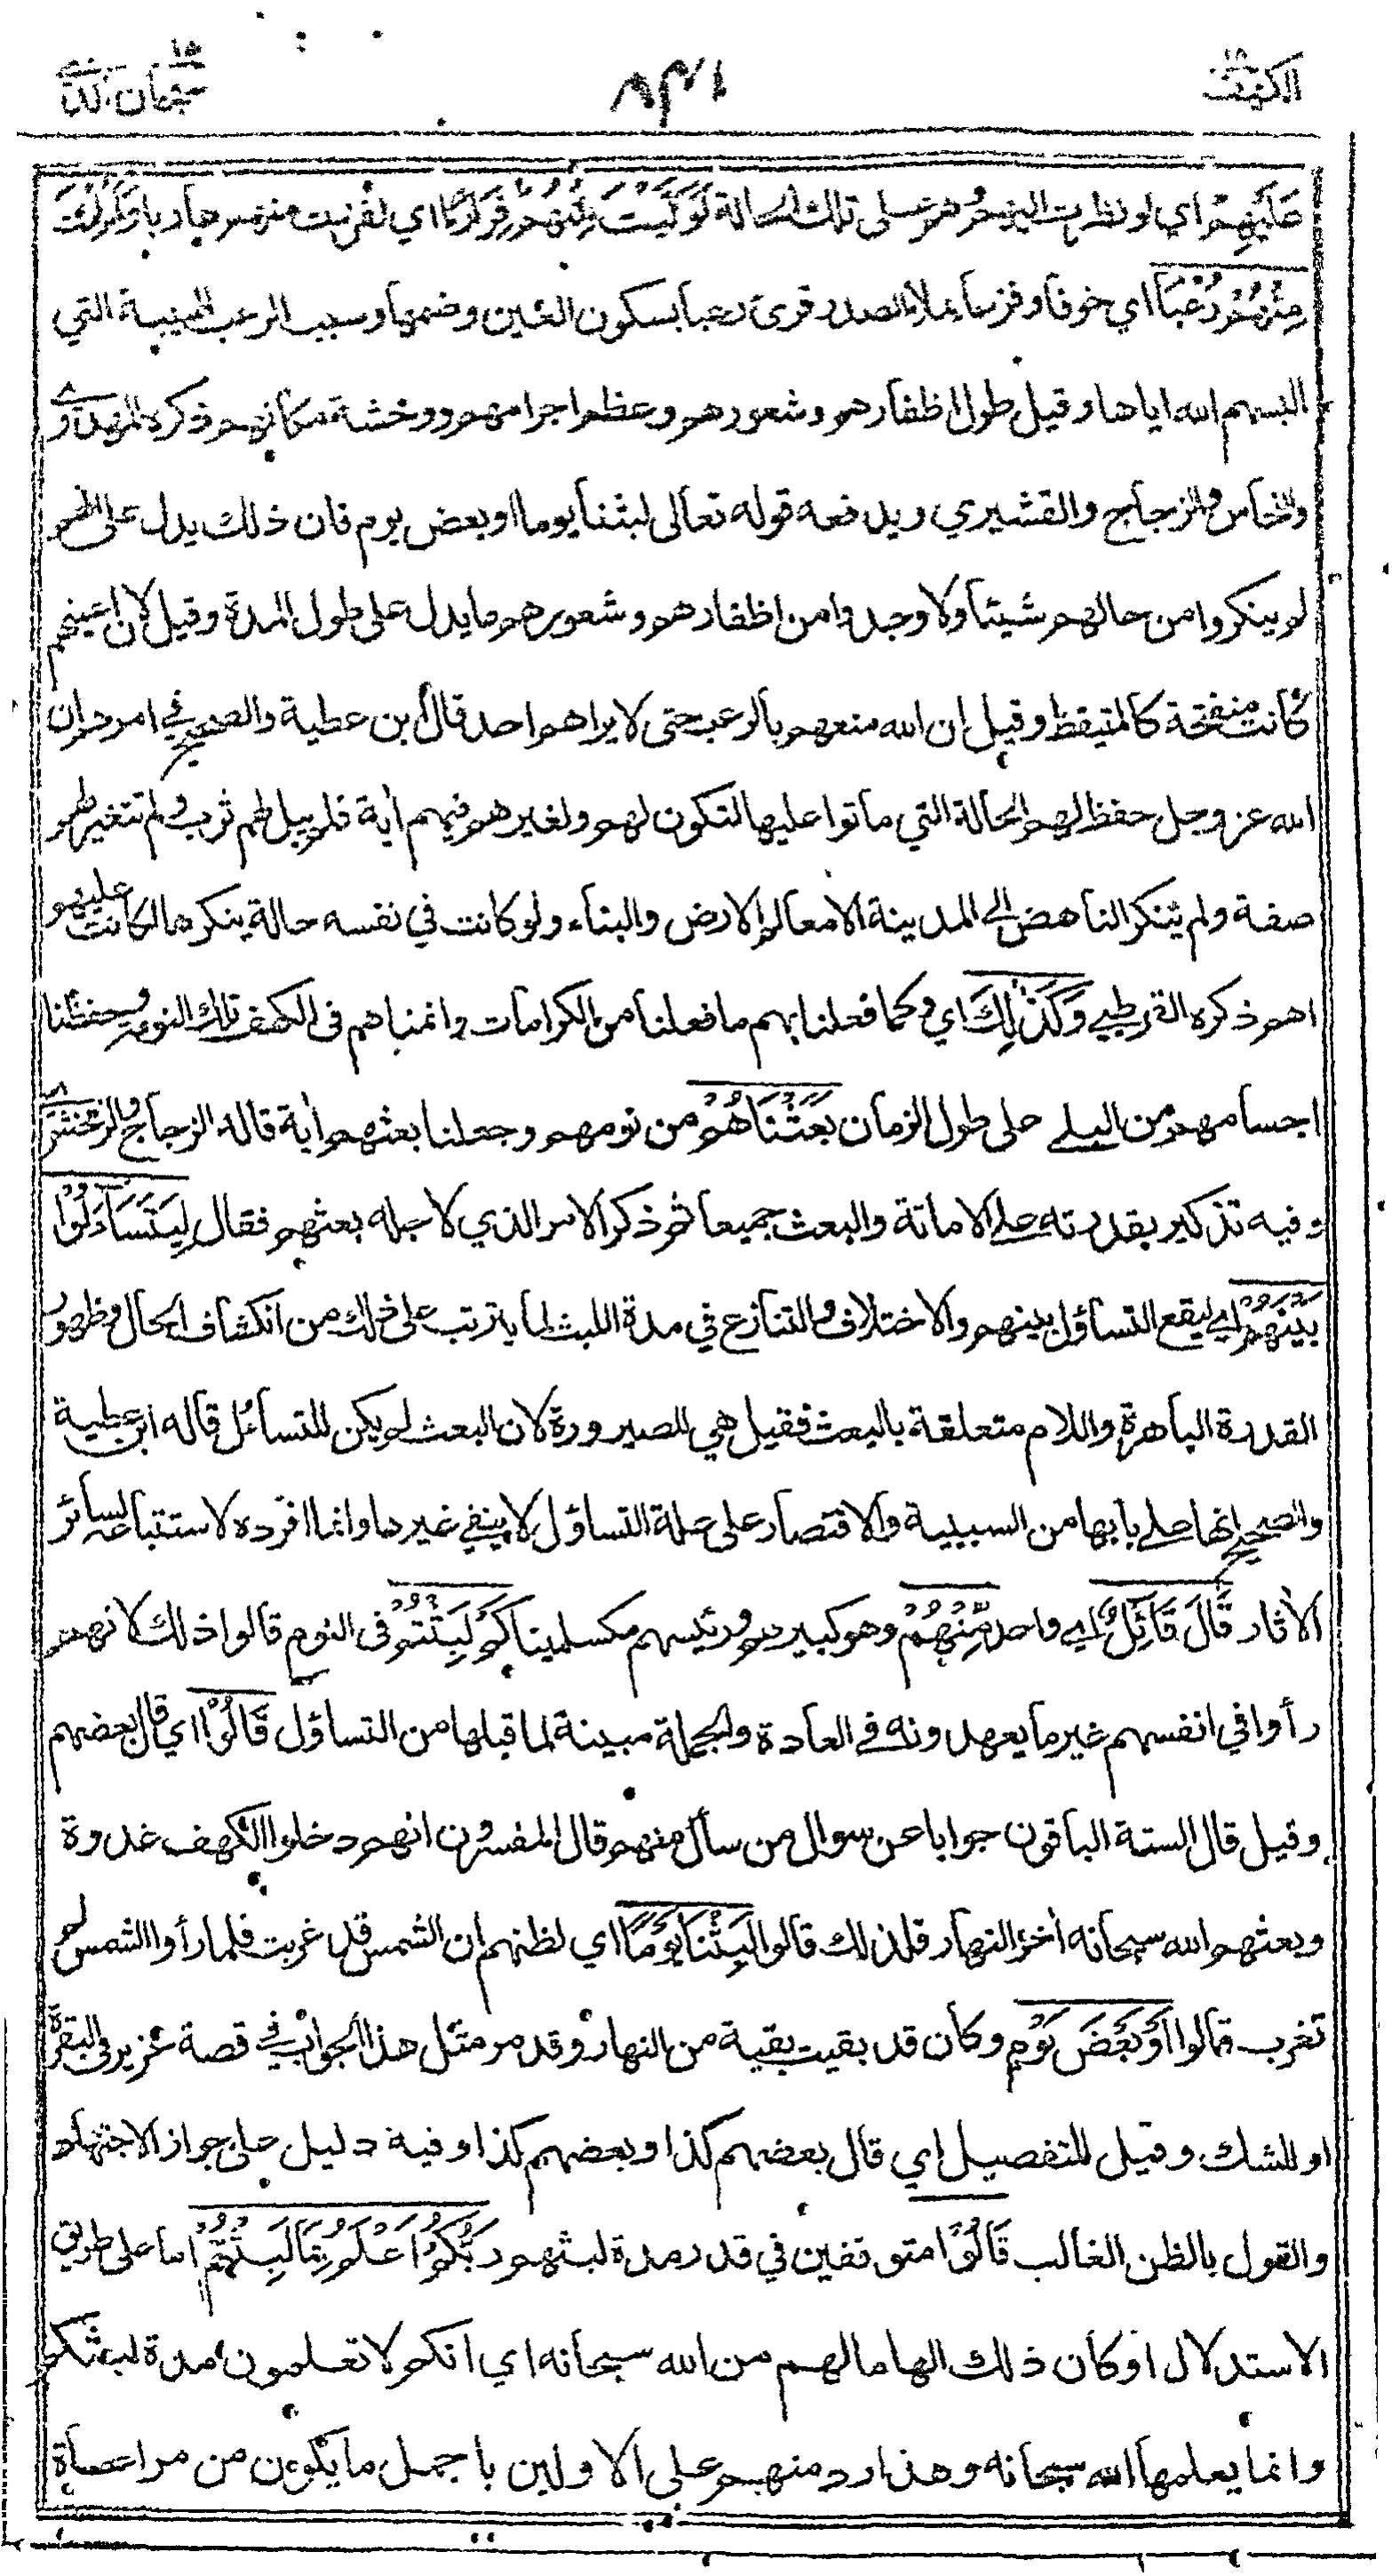 الكهف ١٨
٨٣١
سبحان الذي ١٥
عَلَيْهِمْ اي لو نظرت اليهم وهم على تلك الحالة لَوَلَّيْتَ مِنْهُمْ فِرَارًا اي لفررت منهم هاربا وَلَمُلِئْتَ
مِنْهُمْ رُعْبًا اي خوفا وفزعا يملأ الصدر قرئ رعبا بسكون العين وضمها وسبب الرعب الهيبة التي
البسهم الله اياها وقيل طول اظفارهم وشعورهم وعظم اجرامهم ووحشة مكانهم ذكره المهدوي
والنحاس والزجاج والقشيري ويدفعه قوله تعالى لبثنا يوما او بعض يوم فان ذلك يدل على انهم
لم ينكروا من حالهم شيئا ولا وجدوا من اظفارهم وشعورهم ما يدل على طول المدة وقيل لان اعينهم
كانت منفتحة كالمتيقظ وقيل ان الله منعهم بالرعب حتى لا يراهم احد قال ابن عطية والصحيح في امرهم ان
الله عز وجل حفظ لهم الحالة التي ماتوا عليها لتكون لهم ولغيرهم فيهم أية فلم يبل لهم ثوب ولم تتغير لهم
صفة ولم ينكر الناهض الى المدينة الا معالم الارض والبناء ولو كانت في نفسه حالة ينكرها لكانت عليهم
اهم ذكره القرطبي وَكَذٰلِكَ اي وكما فعلنا بهم ما فعلنا من الكرامات وانمناهم فى الكهف تلك النومة وحفظنا
اجسامهم من البلى على طول الزمان بَعَثْنَاهُمْ من نومهم وجعلنا بعثهم أية قاله الزجاج والزمخشري
وفيه تذكير بقدرته على الاماتة والبعث جميعا ثم ذكر الامر الذي لاجله بعثهم فقال لِيَتَسَاءَلُوْا
بَيْنَهُمْ اي ليقع التساؤل بينهم والاختلاف والتنازع في مدة اللبث لما يترتب على ذلك من انكشاف الحال وظهور
القدرة الباهرة واللام متعلقة بالبعث فقيل هي للصيرورة لان البعث لم يكن للتساءل قاله ابن عطية
والصحيح انها على بابها من السببية والاقتصار على علة التساؤل لا ينفي غيرها وانما افرده لاستتباعه لسائر
الأثار قَالَ قَائِلٌ اي واحد مِّنْهُمْ وهو كبيرهم ورئيسهم مكسلمينا كَمْ لَبِثْتُمْ فى النوم قالوا ذلك لانهم
رأوا في انفسهم غير ما يعهدونه في العادة والجملة مبينة لما قبلها من التساؤل قَالُوْا اي قال بعضهم
وقيل قال الستة الباقون جوابا عن سوال من سأل منهم قال المفسرون انهم دخلوا الكهف غدوة
وبعثهم الله سبحانه أخر النهار فلذلك قالوا لَبِثْنَا يَوْمًا اي لظنهم ان الشمس قد غربت فلما رأوا الشمس لم
تغرب قالوا أَوْ بَعْضَ يَوْمٍ وكان قد بقيت بقية من النهار وقد مر مثل هذا الجواب في قصة عزير فى البقرة
او للشك وقيل للتفصيل اي قال بعضهم كذا وبعضهم كذا وفيه دليل على جواز الاجتهاد
والقول بالظن الغالب قَالُوْا متوقفين في قدر مدة لبثهم رَبُّكُمْ اَعْلَمُ بِمَا لَبِثْتُمْ اما على طريق
الاستدلال او كان ذلك الهاما لهم من الله سبحانه اي انكم لا تعلمون مدة لبثكم
وانما يعلمها الله سبحانه وهذا رد منهم على الاولين باجمل ما يكون من مراعاة